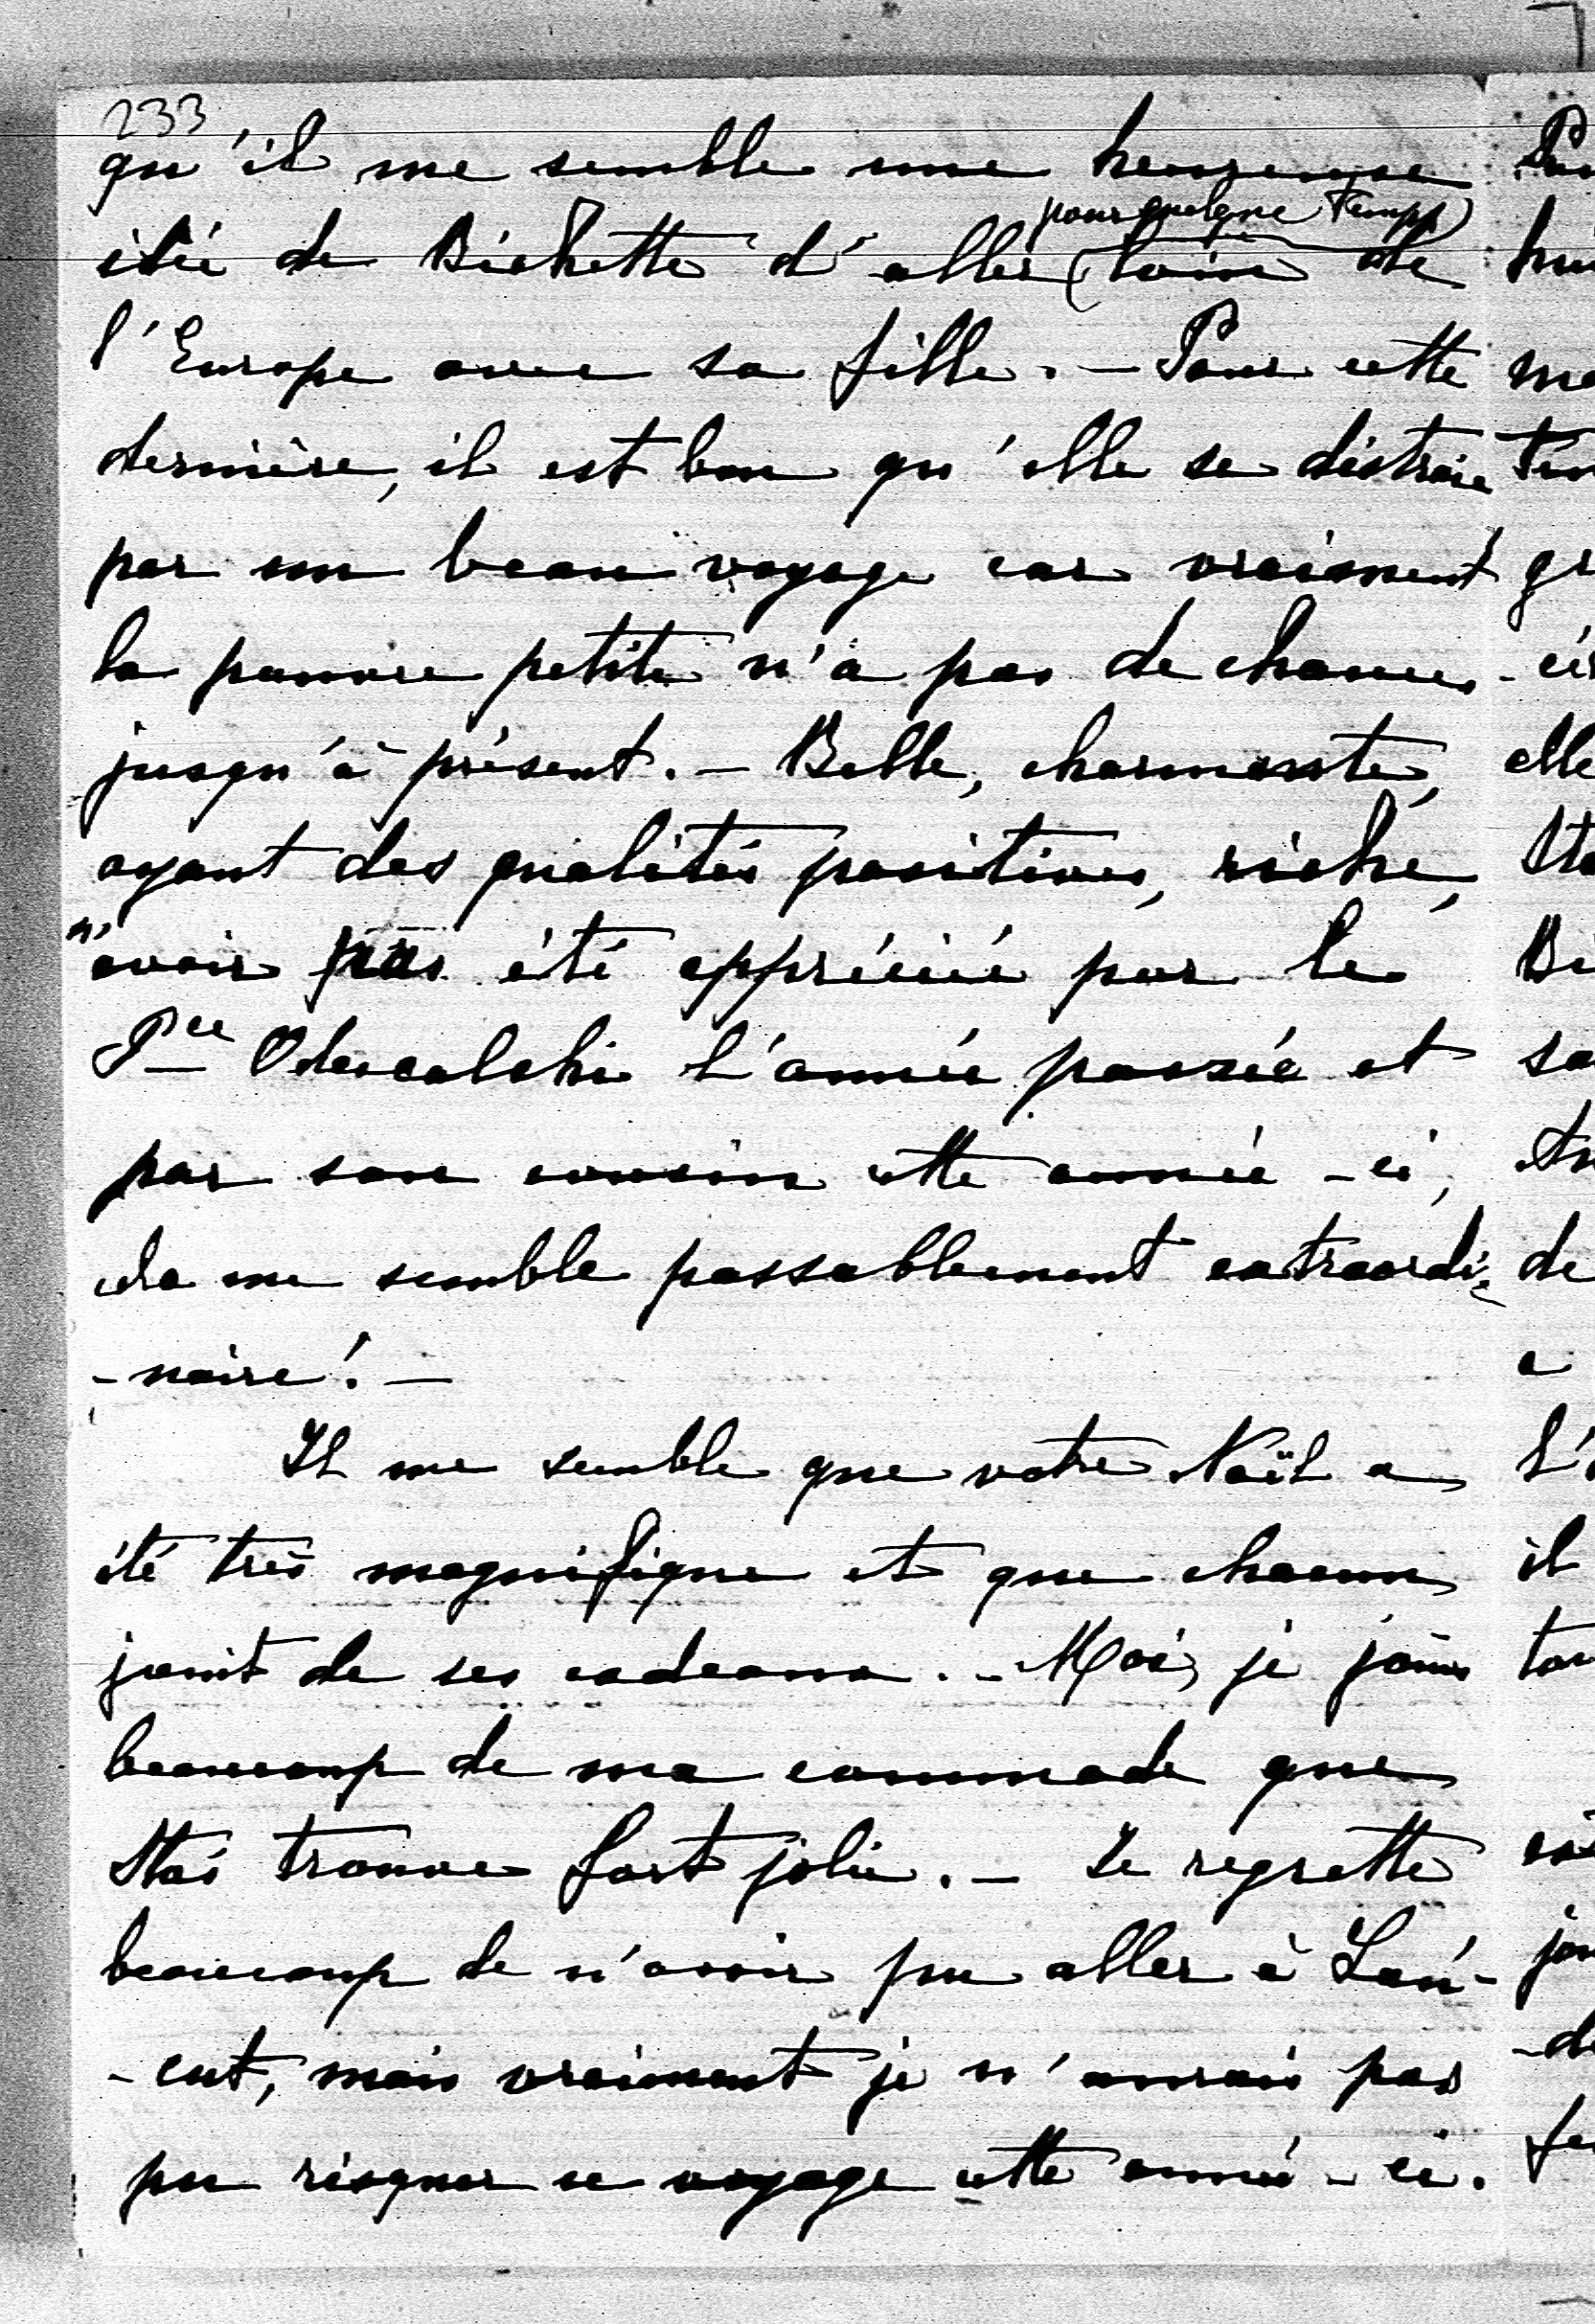 233
qu'il me semble une heureuse
pour quelque temps
idée de Bichette d'aller (loin de
l'Europe avec sa fille. — Pour cette
dernière, il est bon qu'elle se distraie
par un beau voyage car vraiment
la pauvre petite n'a pas de chances
jusqu'à présent. — Belle, charmante,
ayant des qualités positives, riche,
n'avoir pas été appréciée par le
Pce Odescalchi l'année passée et
par son cousin cette année-ci,
cela me semble passablement extraordi-
-naire! —
Il me semble que votre Noël a
été très magnifique et que chacun
jouit de ses cadeaux. — Moi, je jouis
beaucoup de ma commode que
Stas trouve fort jolie. — Je regrette
beaucoup de n'avoir pu aller à Łań-
-cut, mais vraiment je n'aurais pas
pu risquer ce voyage cette année-ci.